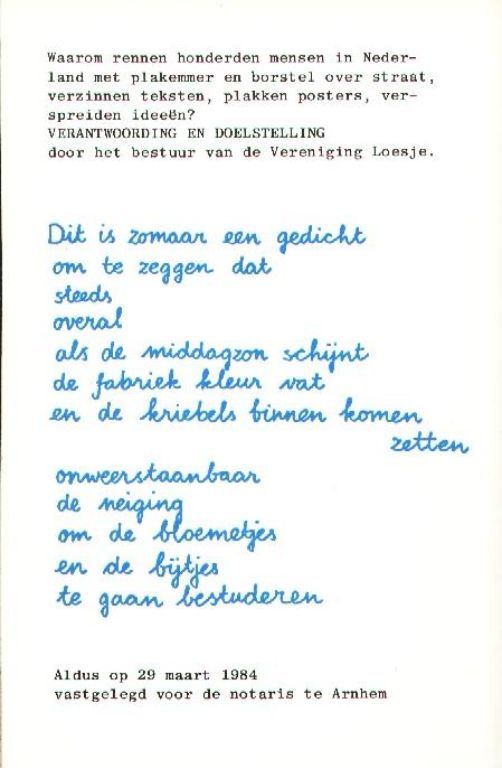 Waarom rennen honderden mensen in Neder-
land met plakemmer en borstel over straat,
verzinnen teksten, plakken posters, ver-
spreiden ideeën?
VERANTWOORDING EN DOELSTELLING
door het bestuur van de Vereniging Loesje.
Dit is zomaar een gedicht
om te zeggen dat
steeds
overal
als de middagzon schijnt
de fabriek kleur vat
en de kriebels binnen komen
zetten
onweerstaanbaar
de neiging
om de bloemetjes
en de bijtjes
te gaan bestuderen
Aldus op 29 maart 1984
vastgelegd voor de notaris te Arnhem